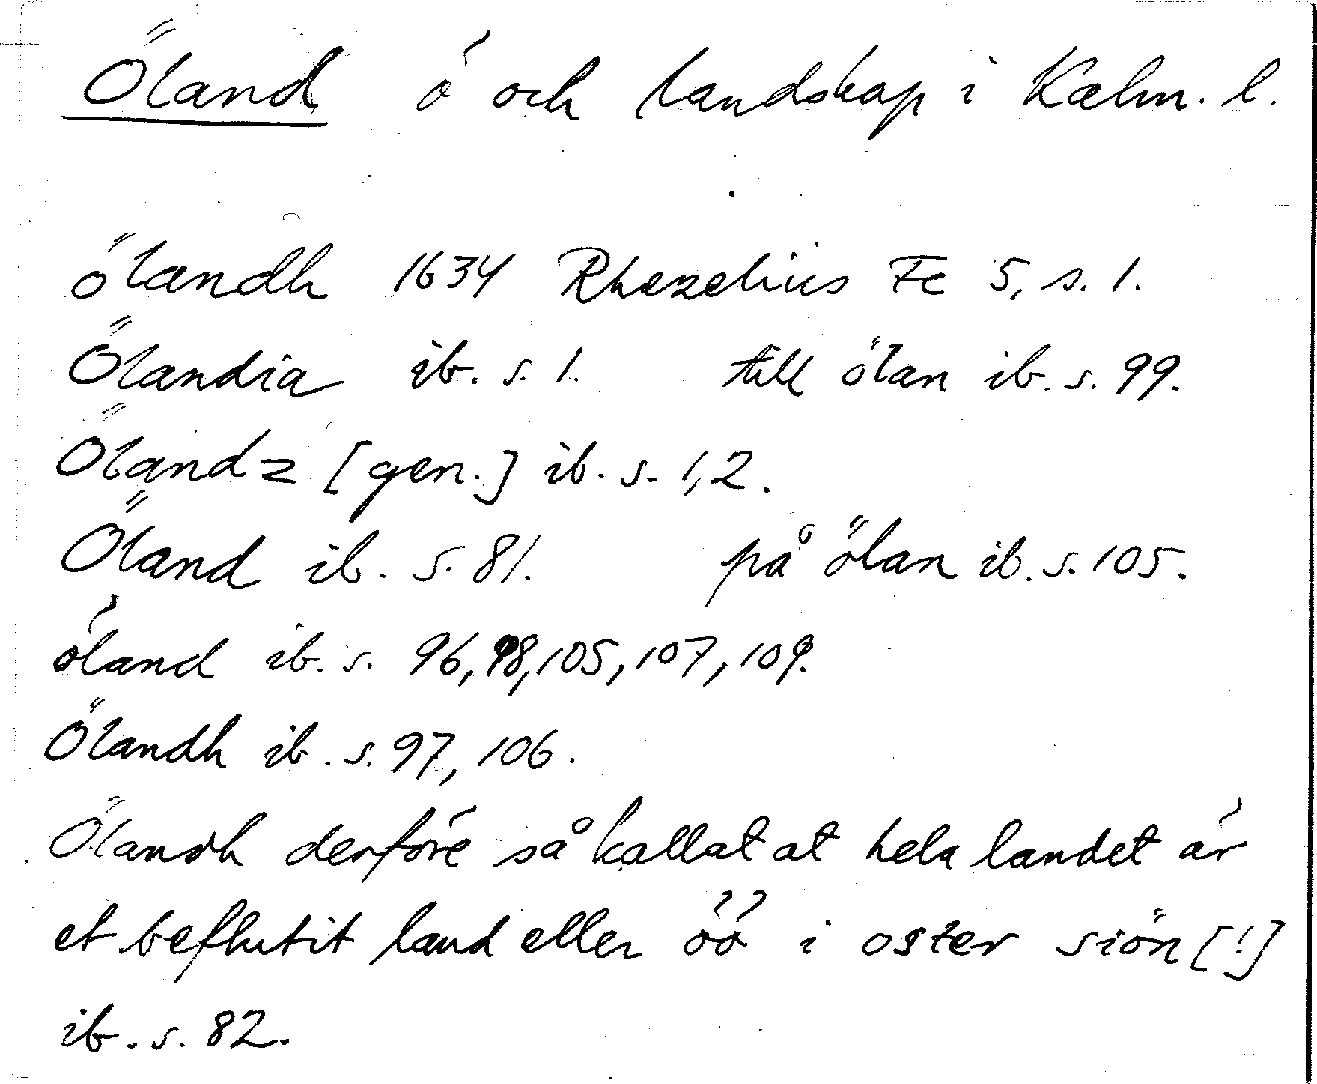 Öland ö och landskap i Kalm. l.
ölandh 1634 Rhezelius Fc 5, s. 1.
Ölandia ib. s. 1. till ölan ib. s. 99.
Ölandz [gen.] ib. s. 1,2.
Öland ib. s. 81. på ölan ib. s. 105.
öland ib. s. 96, 98, 105, 107, 109.
Ölandh ib. s. 97, 106.
Ölandh derföre så kallat at hela landet är
et beflutit land eller öö i oster siön [!]
ib. s. 82.